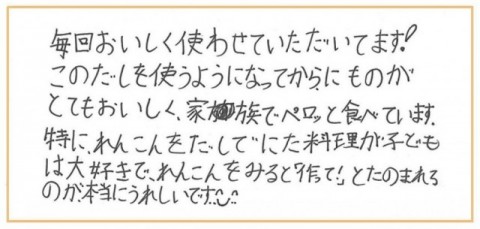 毎回おいしく使わせていただいてます!
このだしを使うようになってから、にものが
とてもおいしく、家族でペロッと食べています。
特に、れんこんをだしでにた料理が子ども
は大好きで、れんこんをみると「作って!」とたのまれる
のが本当にうれしいです。